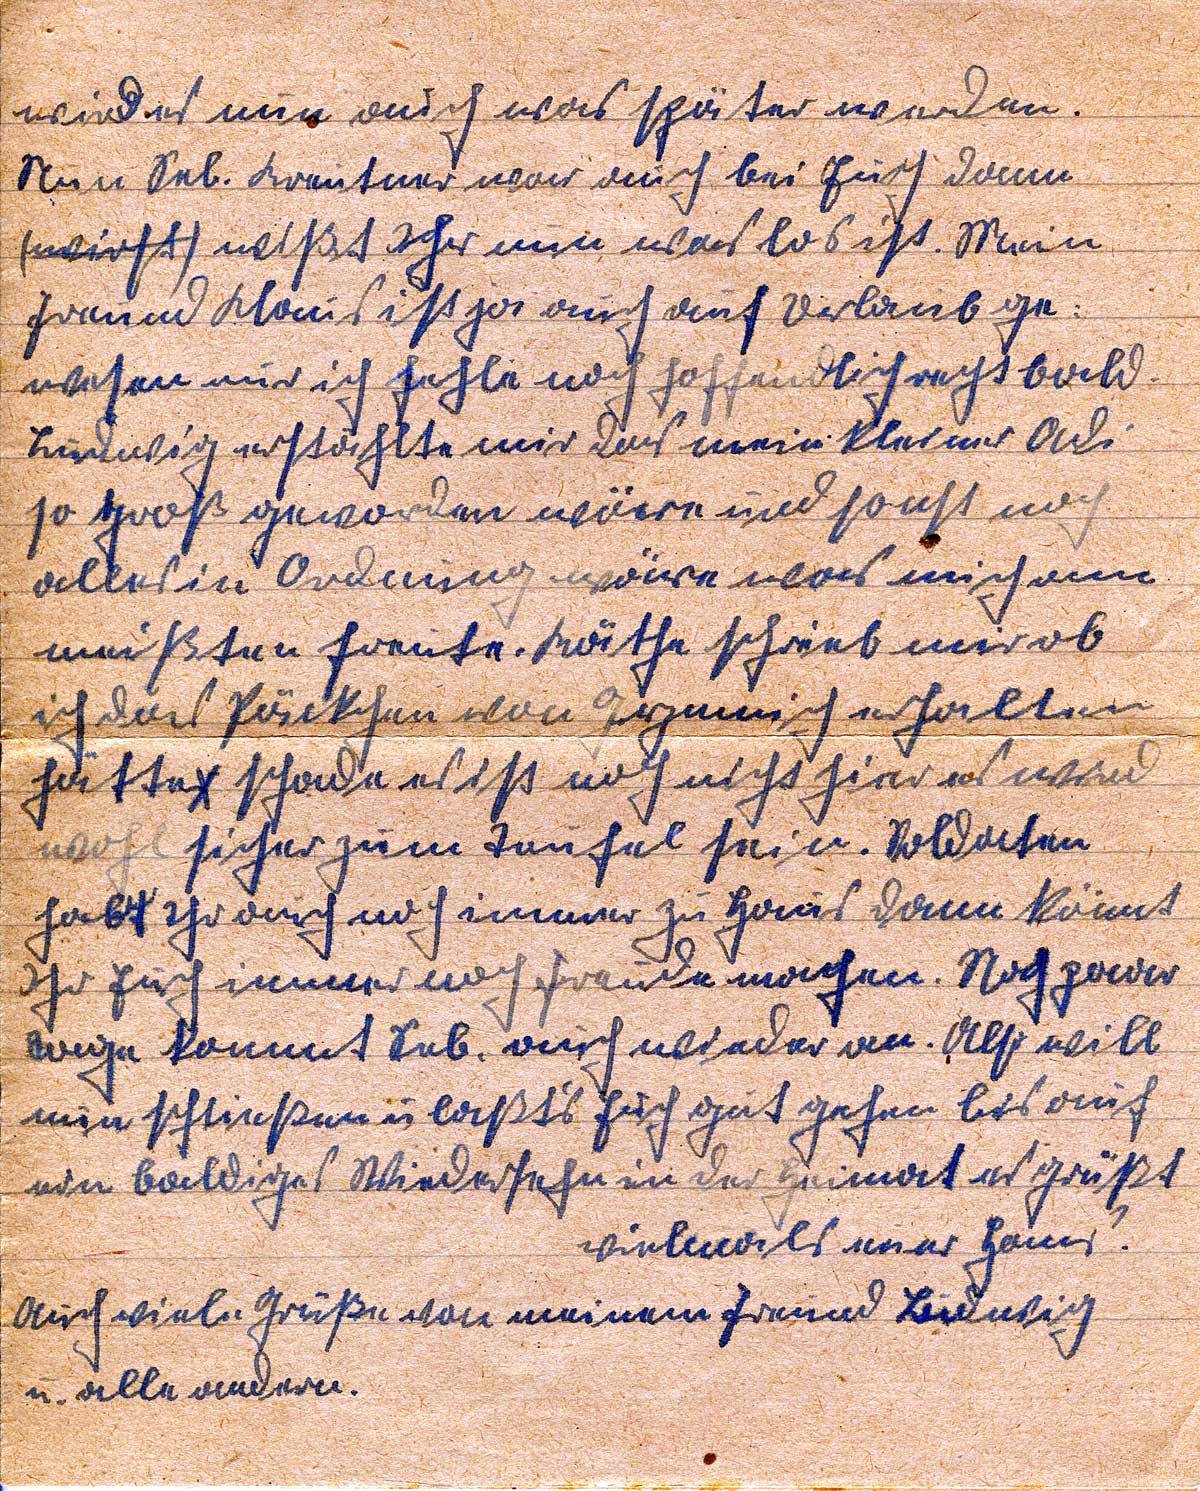 wird es nun auch was später werden.
Nun Seb. Kreutner war auch bei Euch dann
(wirst) wißt Ihr nun was los ist. Mein
Freund Klaus ist ja auch auf Urlaub ge:
wesen nur ich fehle noch hoffendlich recht bald.
Ludwig erzählte mir das mein kleiner Adi
so groß geworden wäre und sonst noch
alles in Ordnung wäre was mich am
meißten freute. Käthe schrieb mir ob
ich das Päckchen von erhalten
hätte schade es ist noch nicht hier es wird
wohl sicher zum Teufel sein. Soldaten
habt Ihr auch noch immer zu Haus dann könnt
Ihr Euch immer noch Freude machen. Noch paar
Tage kommt Seb. auch wieder an. Also will
nun schließen u laßt's Euch gut gehen bis auf
ein baldiges Wiedersehn in der Heimat es grüßt
vielmals euer Hans.
Auch viele Grüße von meinem Freund Ludwig
u. alle andern.